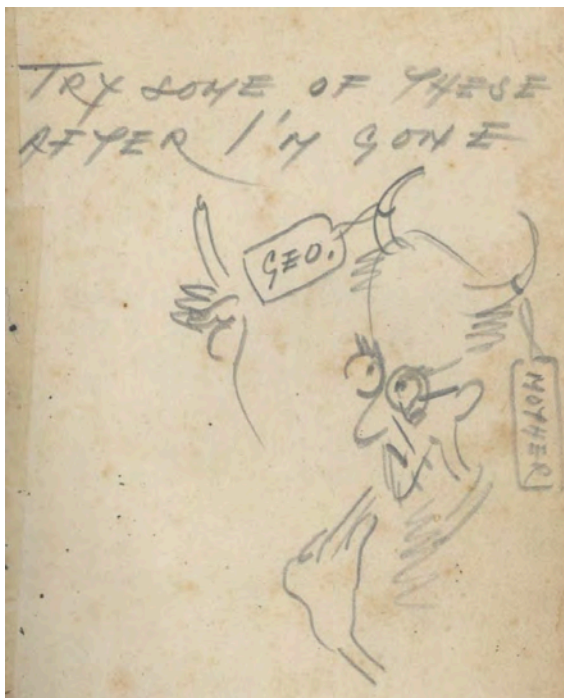 TRY SOME OF THESE
AFTER I'M GONE
GEO.
MOTHER